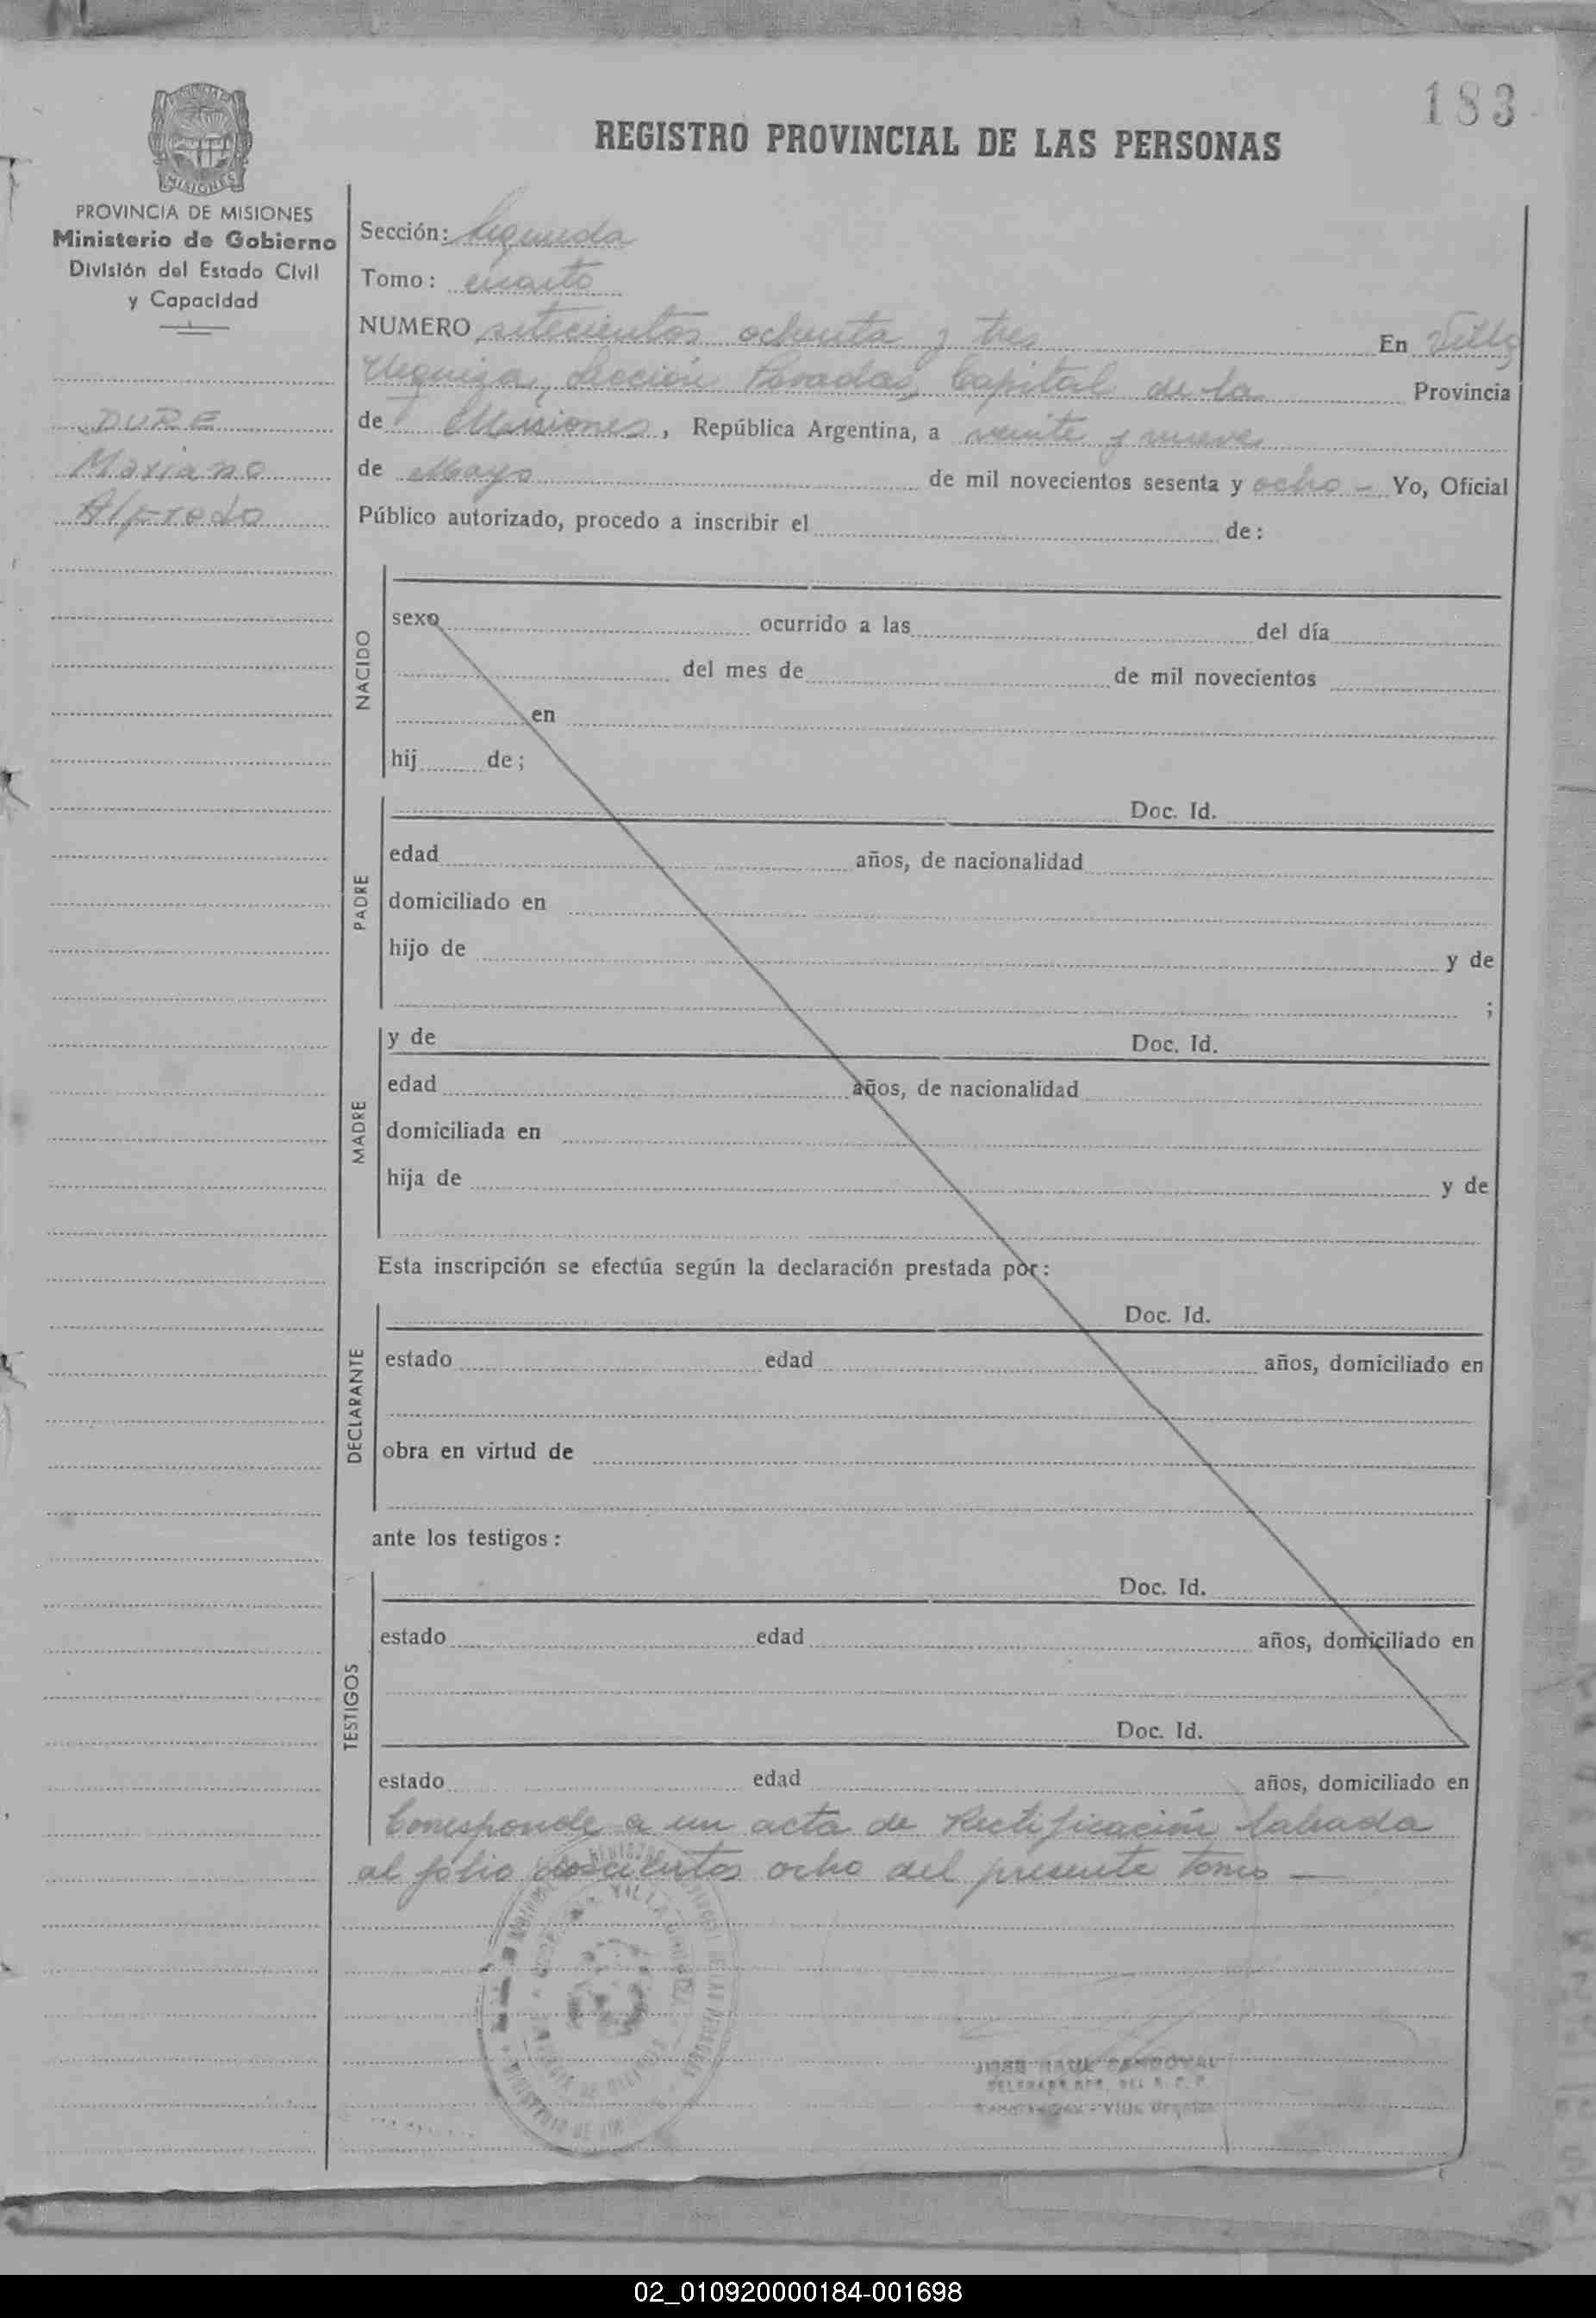 183
REGISTRO PROVINCIAL DE LAS PERSONAS
MISIONES
PROVINCIA DE MISIONES
Ministerio de Gobierno
División del Estado Civil
y Capacidad
DURE
Mariano
Alfredo
Sección: Segunda
Tomo: cuarto
NUMERO setecientos ochenta y tres En Villa
Urquiza, Sección Posadas, Capital de la Provincia
de Misiones, República Argentina, a veinte y nueve
de Mayo de mil novecientos sesenta y ocho - Yo, Oficial
Público autorizado, procedo a inscribir el de:
NACIDO
sexo ocurrido a las del día
del mes de de mil novecientos
en
hij de;
PADRE
Doc. Id.
edad años, de nacionalidad
domiciliado en
hijo de y de
;
MADRE
y de Doc. Id.
edad años, de nacionalidad
domiciliada en
hija de y de
Esta inscripción se efectúa según la declaración prestada por:
DECLARANTE
Doc. Id.
estado edad años, domiciliado en
obra en virtud de
ante los testigos:
TESTIGOS
Doc. Id.
estado edad años, domiciliado en
Doc. Id.
estado edad años, domiciliado en
Corresponde a un acta de Rectificación labrada
al folio doscientos ocho del presente tomo —
JOSE RAUL SANDOVAL
02_010920000184-001698